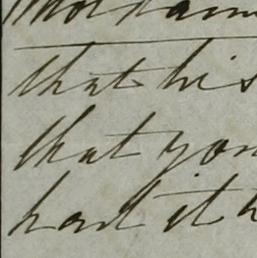 that his
that you
had it